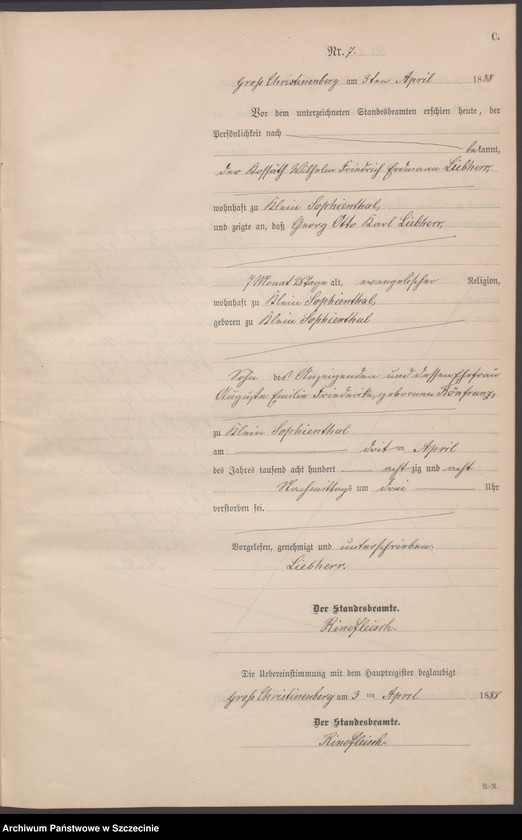 C.
Nr. 7.
Groß Christinenberg am 3ten April 1888
Vor dem unterzeichneten Standesbeamten erschien heute, der
Persönlichkeit nach
bekannt,
der Kossäth Wilhelm Friedrich Erdmann Liebherr,
wohnhaft zu Klein Sophienthal,
und zeigte an, daß Georg Otto Karl Liebherr,
7 Monat 28 Tage alt, evangelischer Religion,
wohnhaft zu Klein Sophienthal,
geboren zu Klein Sophienthal
Sohn des Anzeigenden und dessen Ehefrau
Auguste Emilie Friederike, geborenen
zu Klein Sophienthal
am dritten April
des Jahres tausend acht hundert acht zig und acht
Nachmittags um drei Uhr
verstorben sei.
Vorgelesen, genehmigt und unterschrieben.
Liebherr.
Der Standesbeamte.
Rindfleisch.
Die Uebereinstimmung mit dem Hauptregister beglaubigt
Groß Christinenberg am 3ten April 1888
Der Standesbeamte.
Rindfleisch.
Archiwum Państwowe w Szczecinie